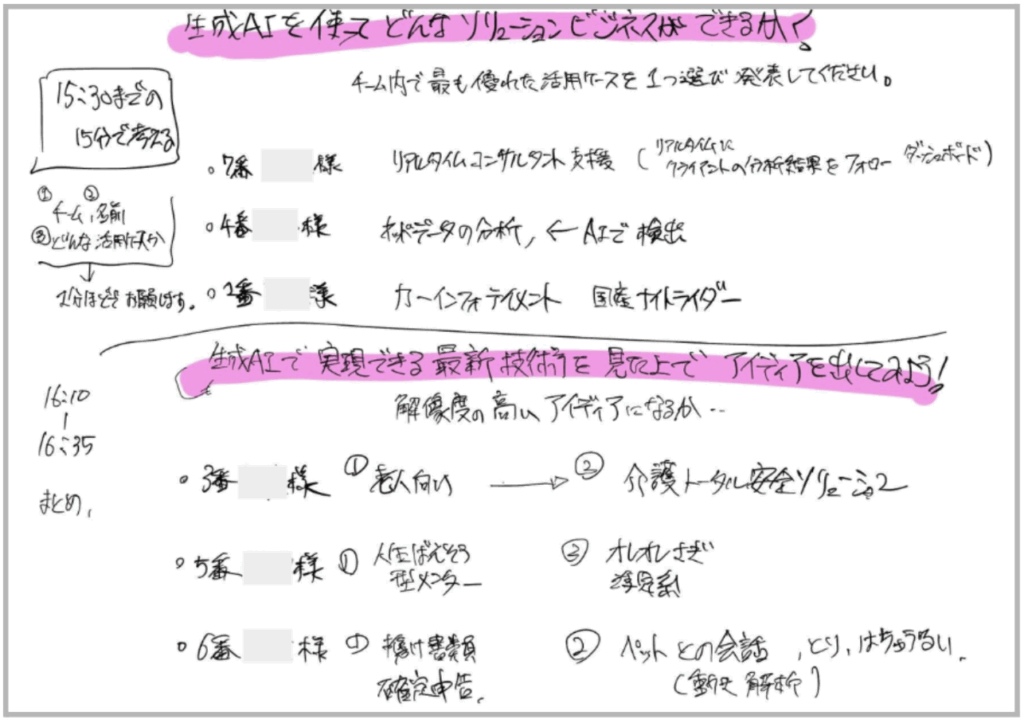 生成AIを使って どんなソリューションビジネスができるか!
チーム内で最も優れた活用ケースを1つ選び発表してください。
15:30までの
15分で考える
① ②
チーム、名前
③どんな活用ケースか
お願いします。
○7番 様 リアルタイムコンサルタント支援 (リアルタイムに クライアントの分析結果をフォロー ダッシュボード)
○4番 様 データの分析、←AIで検出
○2番 様 カーインフォテイメント 国産ナイトライダー
生成AIで実現できる最新技術を見た上でアイディアを出してみよう!
解像度の高いアイディアになるか‥
16:10
|
16:35
まとめ、
○3番 様 ①老人向い → ② 介護トータル安全ソリューション
○5番 様 ① 人生ばんそう
型メンター
オレオレさぎ
○6番 様 ① 書類
確定申告、
② ペットとの会話、とり、はちゅうるい、
(動き解析)